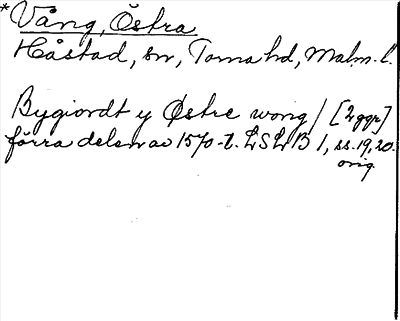 *Vång, Östra
Håstad, sn, Torna hd, Malm. l.
Bygiordt y Østre wong/ [2 ggr]
förra delen av 1570-t. LSLB 1, ss. 19, 20.
orig.